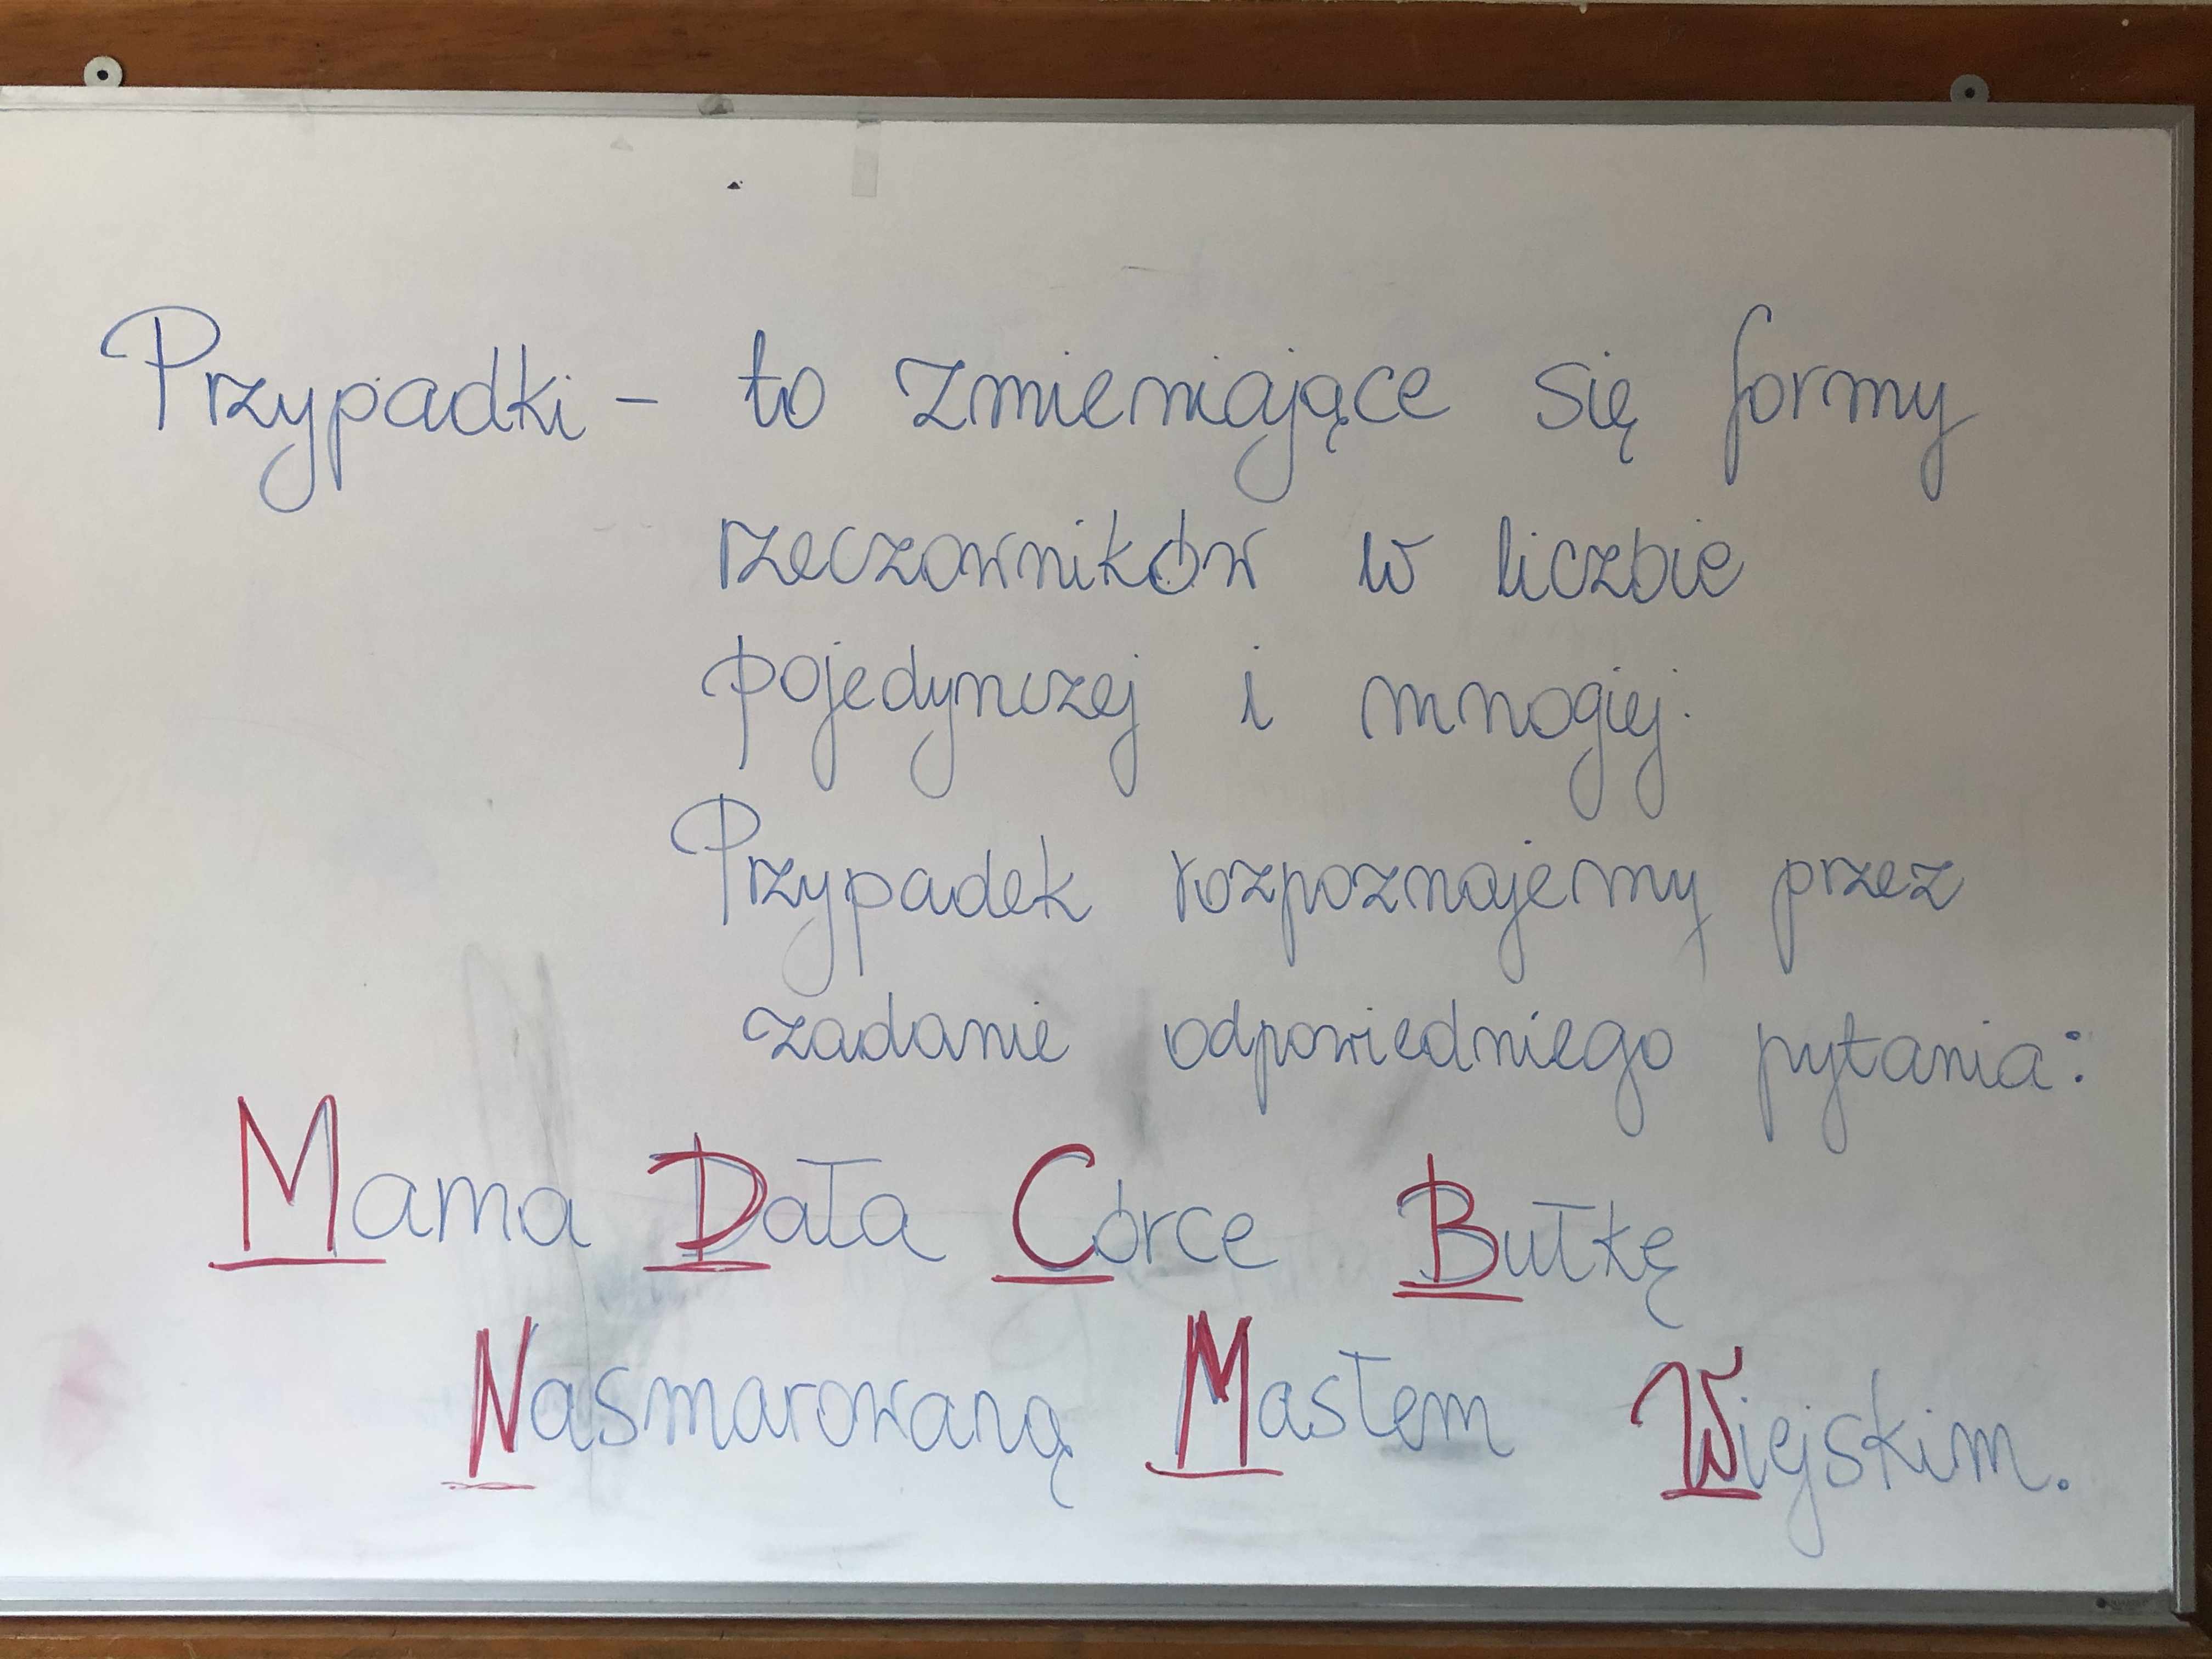 Przypadki - to zmieniające się formy
rzeczowników w liczbie
pojedynczej i mnogiej.
Przypadek rozpoznajemy przez
zadanie odpowiedniego pytania:
Mama Dała Córce Bułkę
Nasmarowaną Masłem Wiejskim.